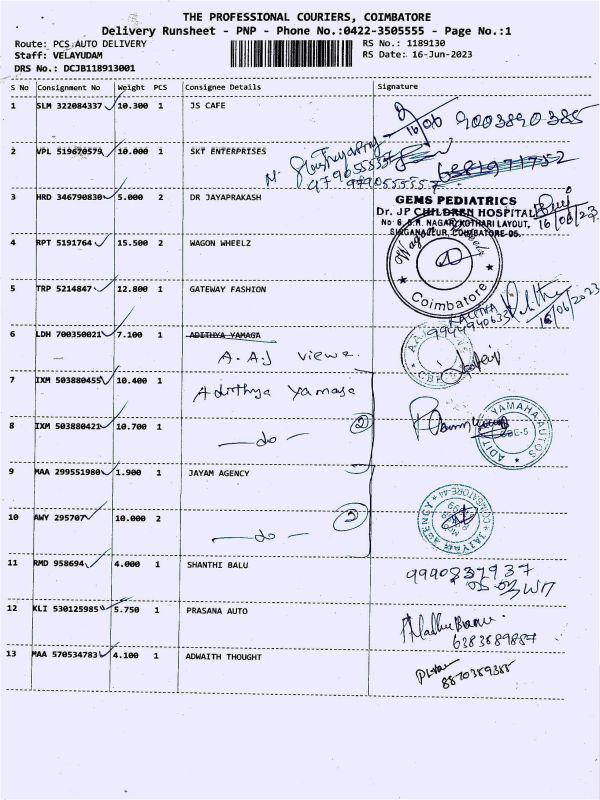 THE PROFESSIONAL COURIERS, COIMBATORE
Delivery Runsheet - PNP - Phone No.:0422-3505555 - Page No.:1
Route: PCS AUTO DELIVERY
RS No.: 1189130
Staff: VELAYUDAM
RS Date: 16-Jun-2023
DRS No.: DCJB118913001
S No Consignment No Weight PCS Consignee Details Signature
1 SLM 322084337 10.300 1 JS CAFE
16/06 9003890385
2 VPL 519670579 10.000 1 SKT ENTERPRISES
9790555576
3 HRD 346790830 5.000 2 DR JAYAPRAKASH
GEMS PEDIATRICS
Dr. JP CHILDREN HOSPITAL
No: 6, S.R. NAGAR, KOTHARI LAYOUT,
SINGANALLUR, COIMBATORE-05.
16/06/23
4 RPT 5191764 15.500 2 WAGON WHEELZ
Coimbatore
5 TRP 5214847 12.800 1 GATEWAY FASHION
LALITHA
16/06/2023
6 LDH 700350021 7.100 1 ADITHYA YAMAGA
A.AJ views
7 IXM 503880455 10.400 1 Adithya yamaga
8 IXM 503880421 10.700 1 -do-
2
YAMAHA AUTOS
9 MAA 299551980 1.900 1 JAYAM AGENCY
JAIYAM AGENCY COIMBATORE-44
10 AWY 295707 10.000 2 -do-
11 RMD 958694 4.000 1 SHANTHI BALU
12 KLI 530125985 5.750 1 PRASANA AUTO
Madhu Banu
6383689884
13 MAA 570534783 4.100 1 ADWAITH THOUGHT
8870389385